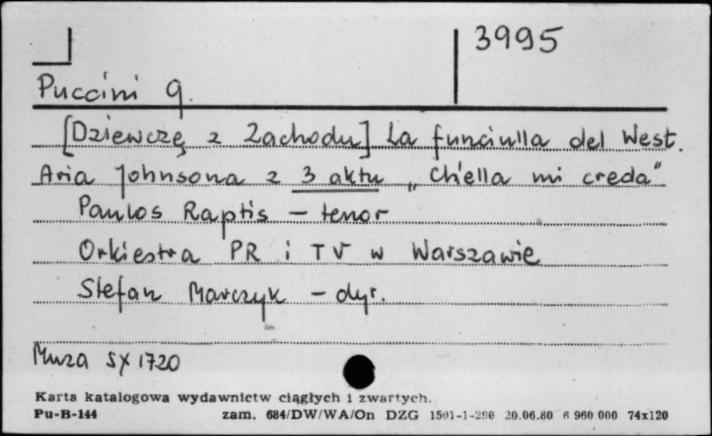 3995
Puccini G.
[Dziewczę z Zachodu] La funciulla del West.
Aria Johnsona z 3 aktu „Ch'ella mi creda"
Paulos Raptis - tenor
Orkiestra PR i TV w Warszawie
Stefan Marczyk - dyr.
Muza SX 1720
Karta katalogowa wydawnictw ciągłych i zwartych.
Pu-B-144 zam. 684/DW/WA/On DZG 1501-1-290 20.06.80 6 960 000 74x120